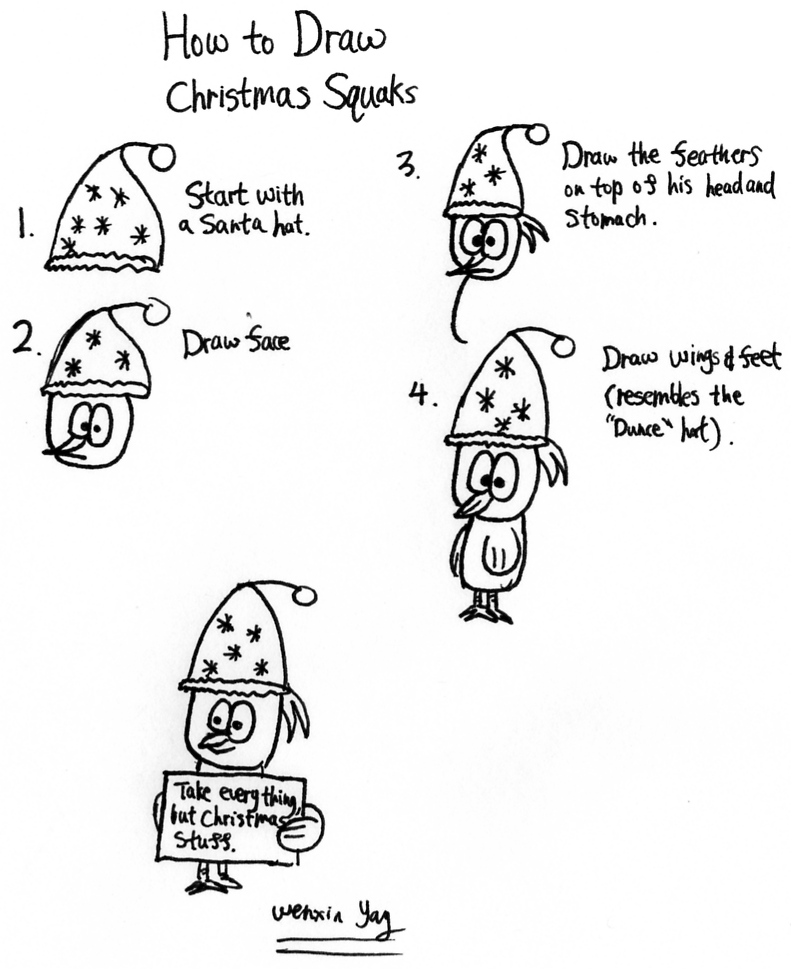 How to Draw
Christmas Squaks
1.
Start with
a Santa hat.
2.
Draw face
3.
Draw the feathers
on top of his head and
Stomach.
4.
Draw wings & feet
(resembles the
"Dunce" hat).
Take everything,
but Christmas
Stuff.
wenxin Yag